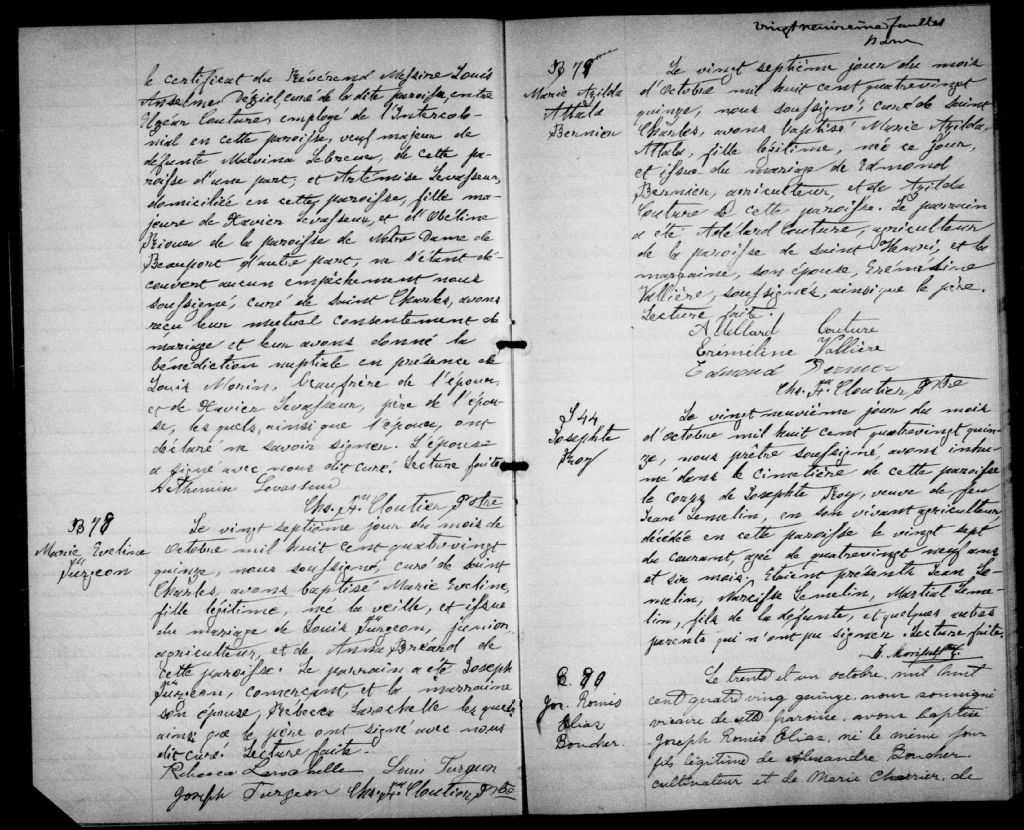 le certificat du Révérend Messire Louis
Anselme Déziel, curé de la dite paroisse, entre
Elzéar Couture, employé de l'Intercolo-
nial en cette paroisse, veuf majeur de
défunte Malvina Lebreux, de cette pa-
roisse d'une part, et Artémise Levasseur,
domiciliée en cette paroisse, fille ma-
jeure de Xavier Levasseur, et d'Obeline
de la paroisse de Notre Dame de
Beauport d'autre part, ne s'étant dé-
couvert aucun empêchement nous
soussigné, curé de Saint Charles, avons
reçu leur mutuel consentement de
mariage et leur avons donné la
bénédiction nuptiale en présence de
Louis Morin, beaufrère de l'époux,
et de Xavier Levasseur, père de l'épou-
se, les quels, ainsi que l'époux, ont
déclaré ne savoir signer. L'épouse
a signé avec nous dit curé, Lecture faite
Levasseur
Chs. Cloutier, Ptre
B 78
Marie Eveline
Turgeon
Le vingt septième jour du mois de
Octobre mil huit cent quatrevingt
quinze, nous soussigné, curé de saint
Charles, avons baptisé Marie Eveline,
fille légitime, née la veille, et issue
du mariage de Louis Turgeon, junior,
agriculteur, et de Anna Bréard de
cette paroisse. Le parrain a été Joseph
Turgeon, comerçant et la marraine
son épouse, Rébecca Larochelle les quels
ainsi que le père ont signé avec nous
dit curé. Lecture faite.
Rébecca Larochelle Louis Turgeon
Joseph Turgeon Chs. Cloutier, Ptre
vingt neuvieme feuillet
B 79
Marie Azilda
Attala
Bernier
Le vingt septième jour du mois
d'Octobre mil huit cent quatrevingt
quinze, nous soussigné, curé de saint
Charles, avons baptisé Marie Azilda,
Attala, fille légitime, née ce jour,
et issue du mariage de Edmond
Bernier, agriculteur, et de Azilda
Couture de cette paroisse. Le parrain
a été Adélard Couture, agriculteur
de la paroisse de Saint Henri, et la
marraine, son épouse, Erémésine
Vallière, soussignés, ainsi que le père.
Lecture faite.
Couture
Eréméline Vallière
Edmond Bernier
Chs. Cloutier Ptre
S 44
Josephte
Roy
Le vingt neuvième jour du mois
d'octobre mil huit cent quatrevingt quin-
ze, nous prêtre soussigné, avons inhu-
mé dans le cimetière de cette paroisse
le corps de Josephte Roy, veuve de feu
Jean Lemelin, en son vivant agriculteur,
décédée en cette paroisse le vingt sept
du courant, agé de quatrevingt neuf ans
et six mois. Etaient présents Jean Le-
melin, Narcisse Lemelin, Martial Leme-
lin, fils de la défunte, et quelques autres
parents qui n'ont pu signer. Lecture faite.
B. 80
Jos. Roméo
Elias
Boucher.
Le trente et un octobre, mil huit
cent quatre ving quinze, nous soussigné
vicaire de cette paroisse, avons baptisé
Joseph Roméo Elias, né le même jour
fils légitime de Alexandre Boucher
cultivateur et de Marie Charrier, de